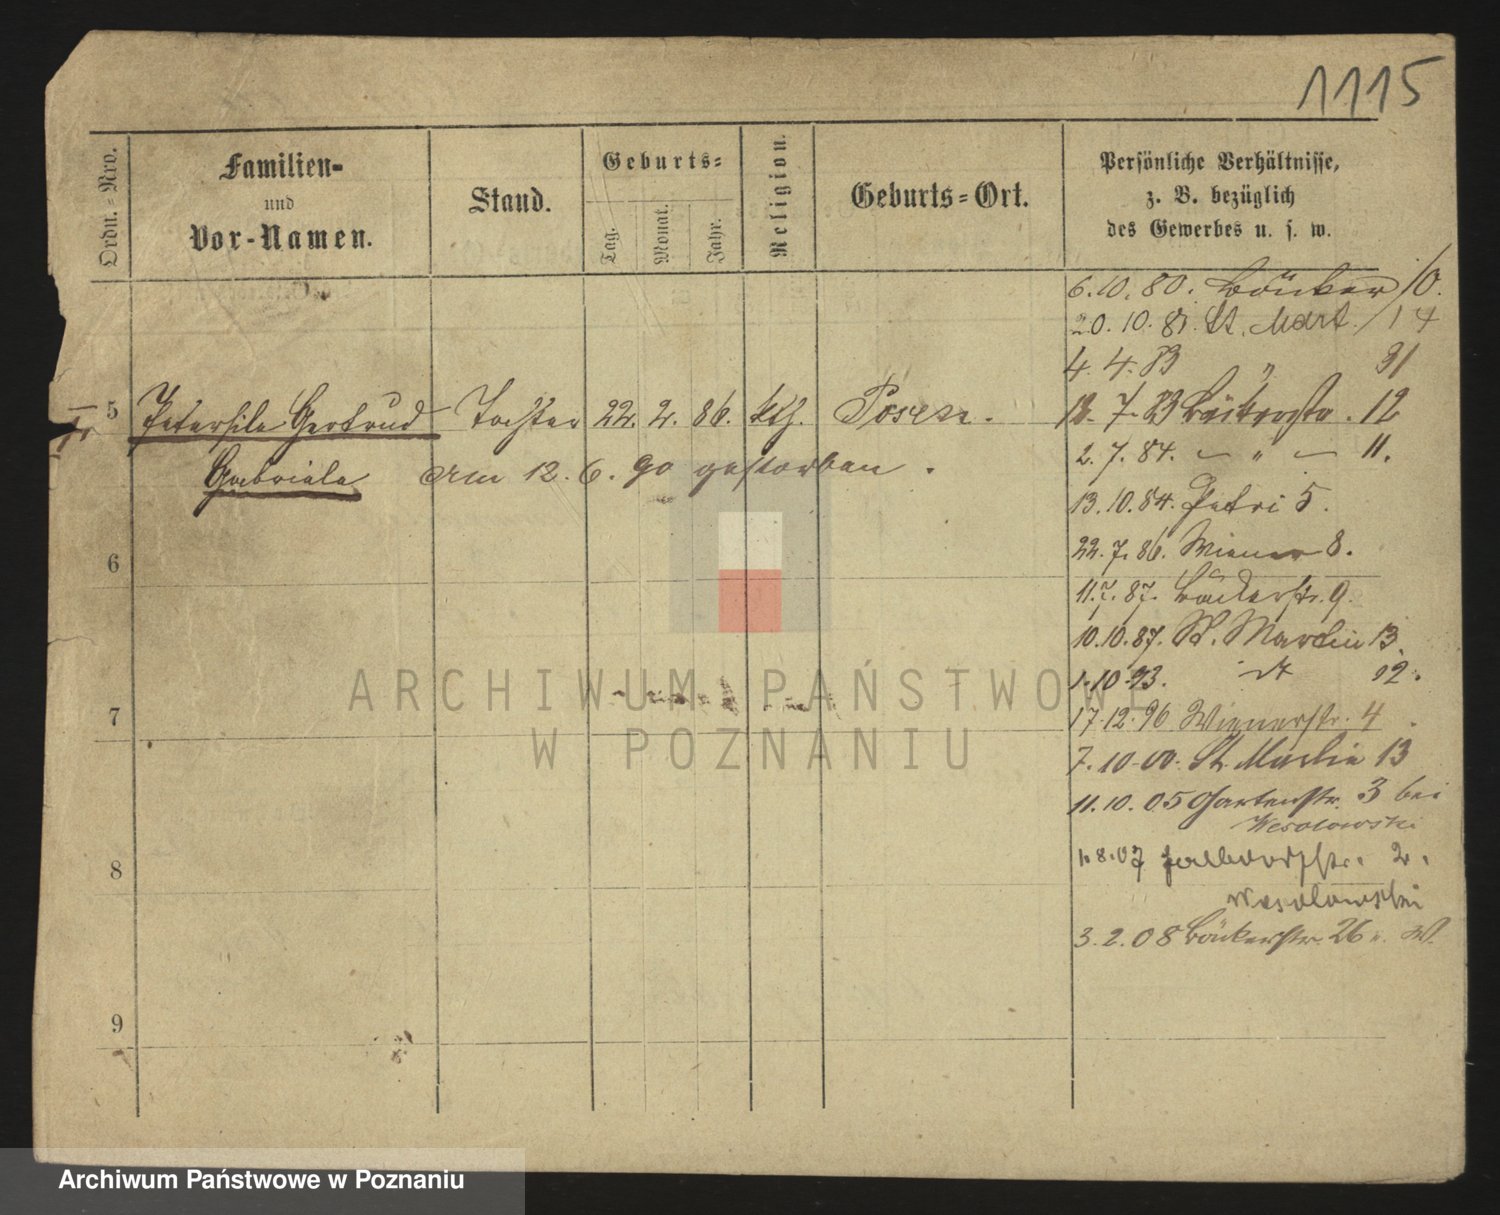 1115
Ordn.-Nro.
Familien-
und
Vor-Namen.
Stand.
Geburts-
Tag.
Monat.
Jahr.
Religion.
Geburts-Ort.
Persönliche Verhältnisse,
z. B. bezüglich
des Gewerbes u. s. w.
6.10.80. Bäcker 10.
20.10.81. St. Mart. 14
4.4.83 " 31
7.83 Bäckerstr. 12
5 Petersile Gertrud Tochter 22. 2. 86. kth. Posen.
2.7.84. — " — 11.
Gabriele Am 12.6.90 gestorben.
13.10.84. Petri 5.
22.7.86. Wiener 8.
6
11.7.87. Bäckerstr. 9.
10.10.87. St. Martin 13.
1.10.93. dt 12.
7
17.12.96 Wienerstr. 4
7.10.00. St. Martin 13
11.10.05 Gartenstr. 3 bei
Wesolowski
8
1.8.07 2.
Wesolowski
3.2.08 Bäckerstr. 26 W.
9
ARCHIWUM PAŃSTWOWE
W POZNANIU
Archiwum Państwowe w Poznaniu